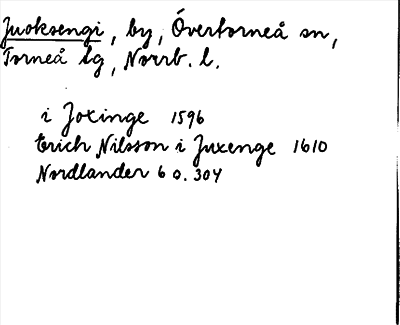 Juoksengi, by, Övertorneå sn,
Torneå lg, Norrb. l.
i Joxinge 1596
Erich Nilsson i Juxenge 1610
Nordlander 6 o. 304